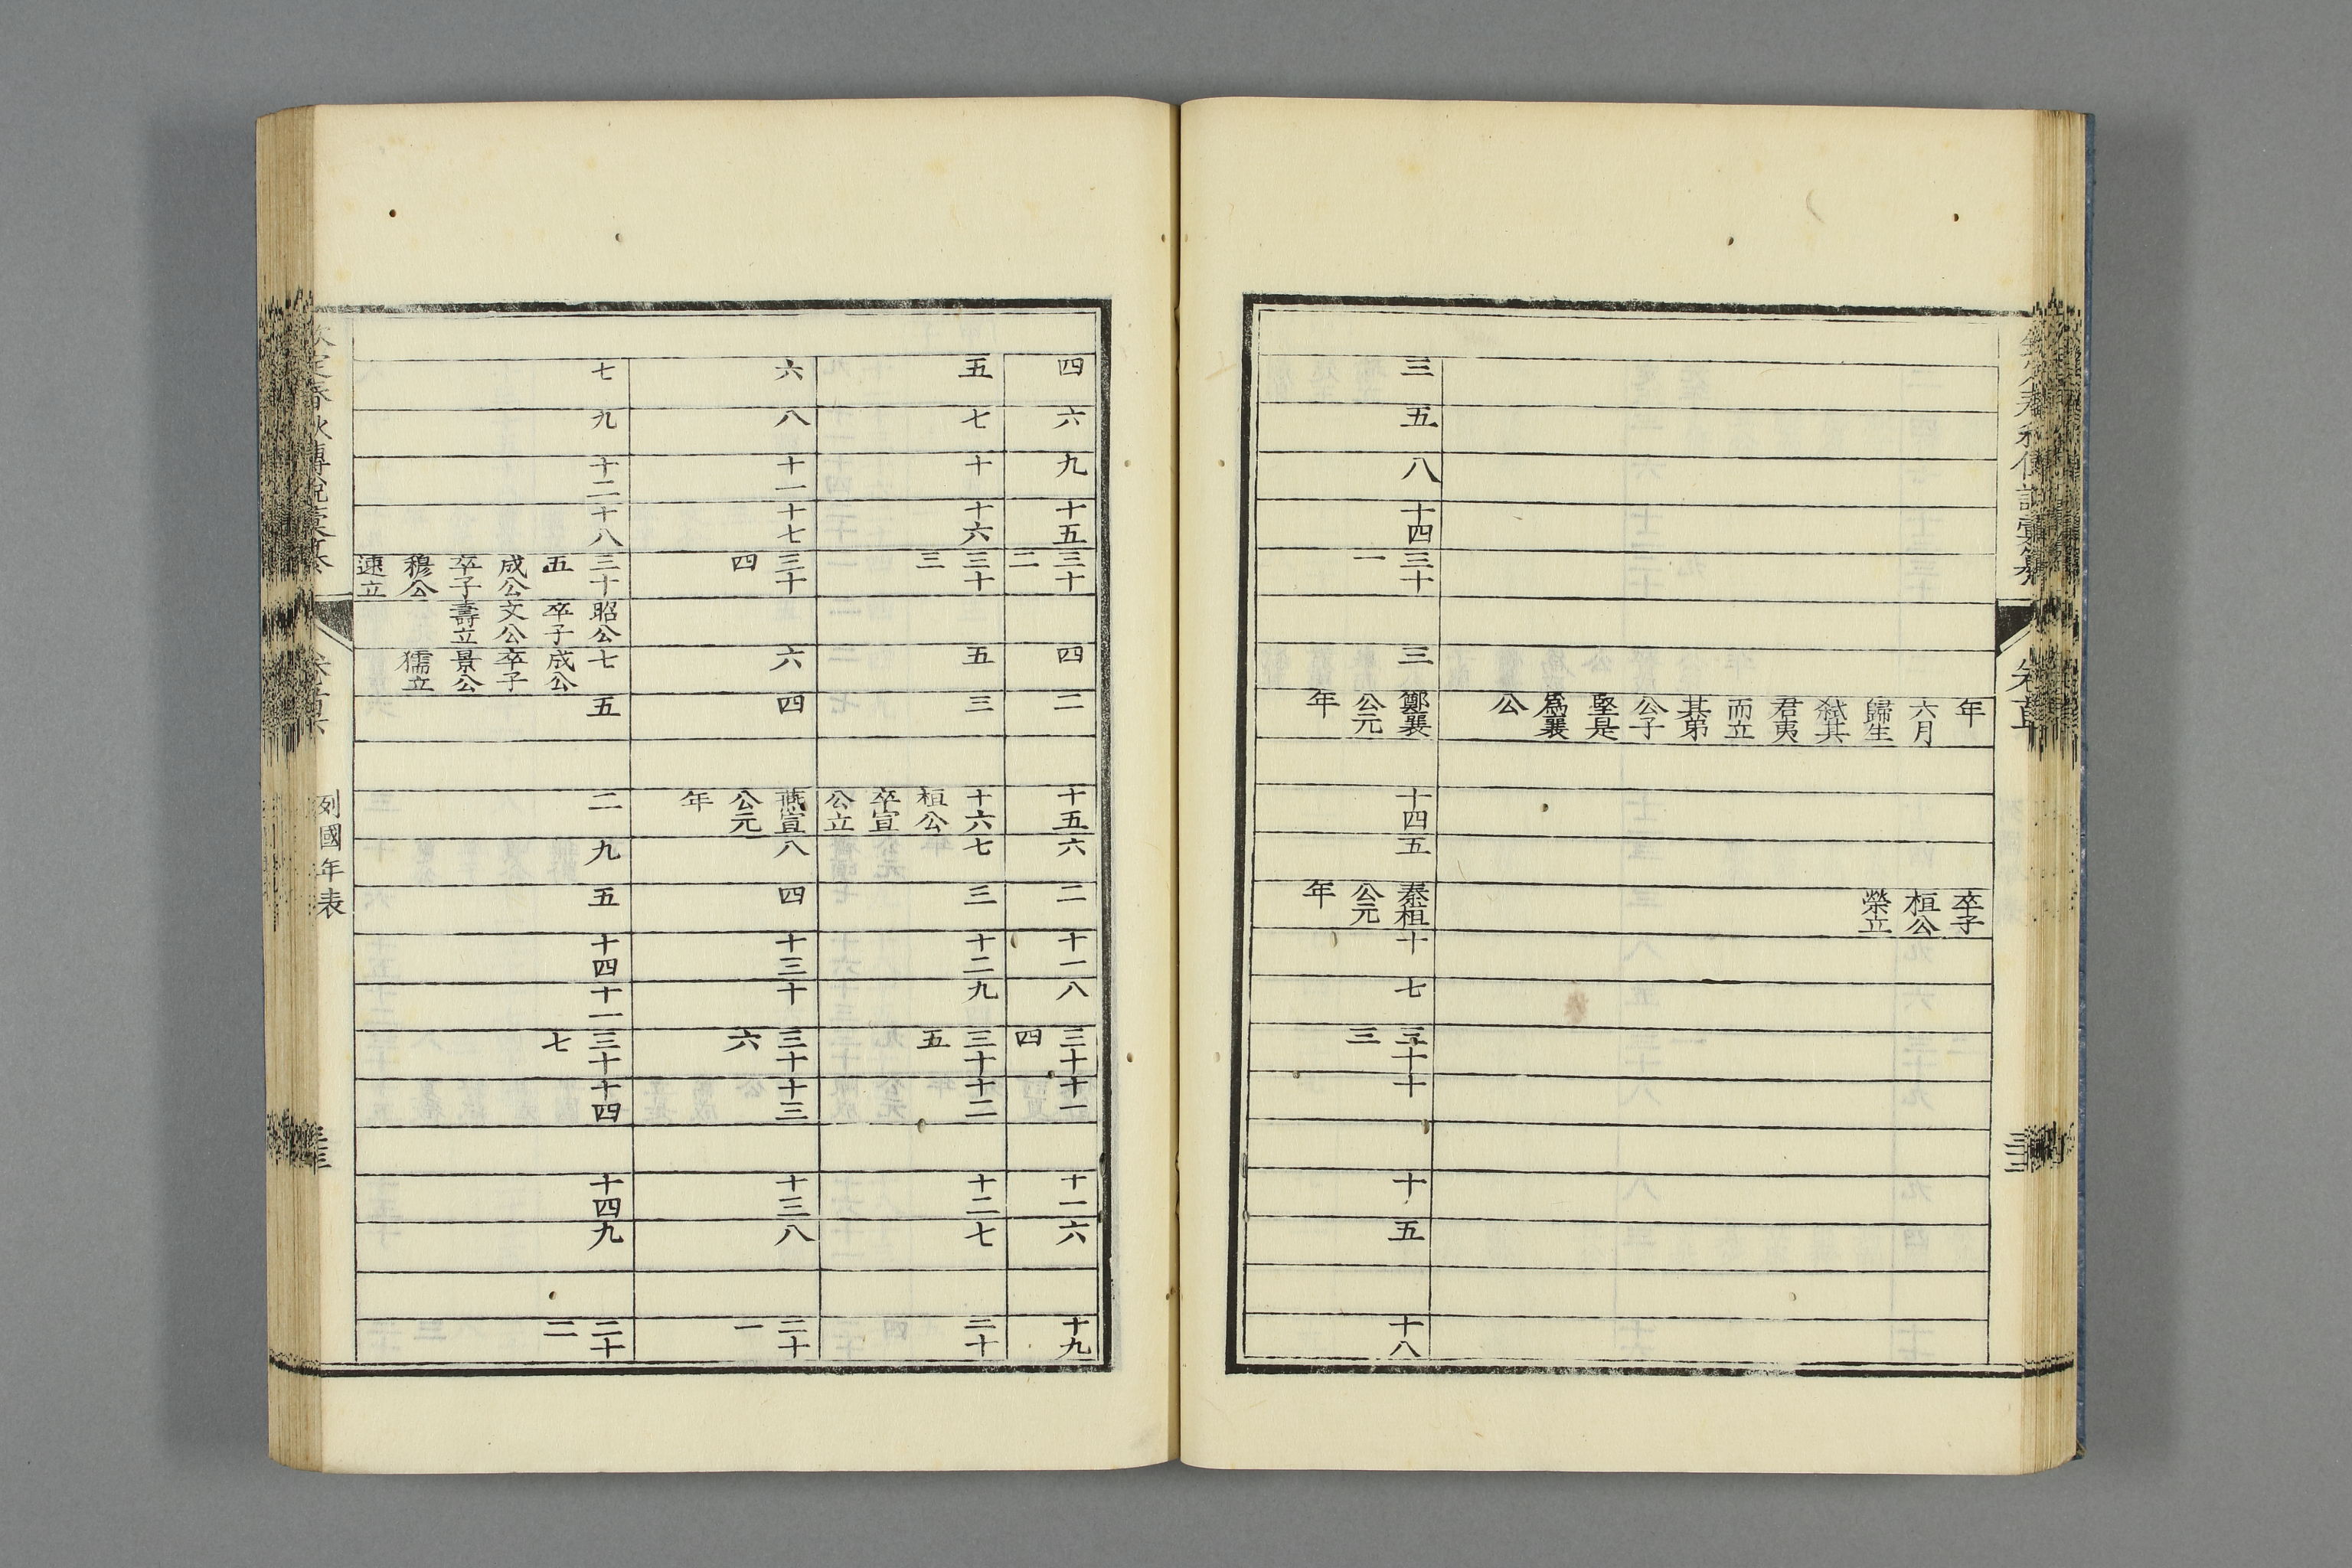 欽定春秋傳說彙纂
卷首
年
六月
歸生
弑其
君夷
而立
其弟
公子
堅是
爲襄
公
卒子
桓公
榮立
三
五
八
十四
三十
一
三
鄭襄
公元
年
十四
五
秦桓
公元
年
十
七
三十
三
十
十
五
十八
四
六
九
十五
三十
二
四
二
十五
六
二
十一
八
三十
四
十一
十一
六
十九
五
七
十
十六
三十
三
五
三
十六
桓公
卒宣
公立
七
三
十二
九
三十
五
十二
十二
七
二十
六
八
十一
十七
三十
四
六
四
燕宣
公元
年
八
四
十三
十
三十
六
十三
十三
八
二十
一
七
九
十二
十八
三十
五
成公
卒子
穆公
速立
昭公
卒子
文公
壽立
七
成公
卒子
景公
獳立
五
二
九
五
十四
十一
三十
七
十四
十四
九
二十
二
欽定春秋傳說彙纂
列國年表